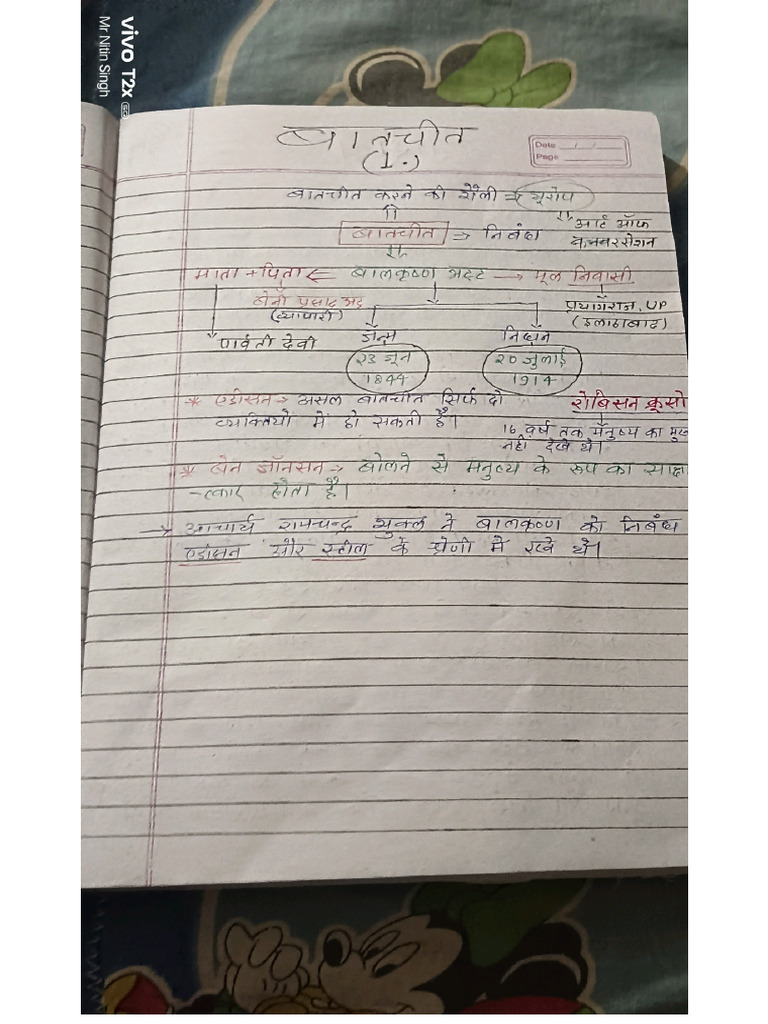 vivo T2x
Mr Nitin Singh
बातचीत
(1.)
Date
Page
बातचीत करने की शैली → यूरोप
बातचीत → निबंध
आर्ट ऑफ
कनवरसेशन
माता + पिता ← बालकृष्ण भट्ट → मूल निवासी
बेनी प्रसाद भट्ट
(व्यापारी)
प्रयागराज, UP
(इलाहाबाद)
पार्वती देवी
जन्म
निधन
23 जून
1844
20 जुलाई
1914
* एडीसन → असल बातचीत सिर्फ दो
व्यक्तियों में हो सकती है।
रोबिसन क्रूसो
16 वर्ष तक मनुष्य का मुख
नहीं देखे थे।
* बेन जॉनसन → बोलने से मनुष्य के रूप का साक्षा
-त्कार होता है।
* आचार्य रामचन्द्र शुक्ल ने बालकृष्ण को निबंध
एडीसन और स्टील के श्रेणी में रखे थे।